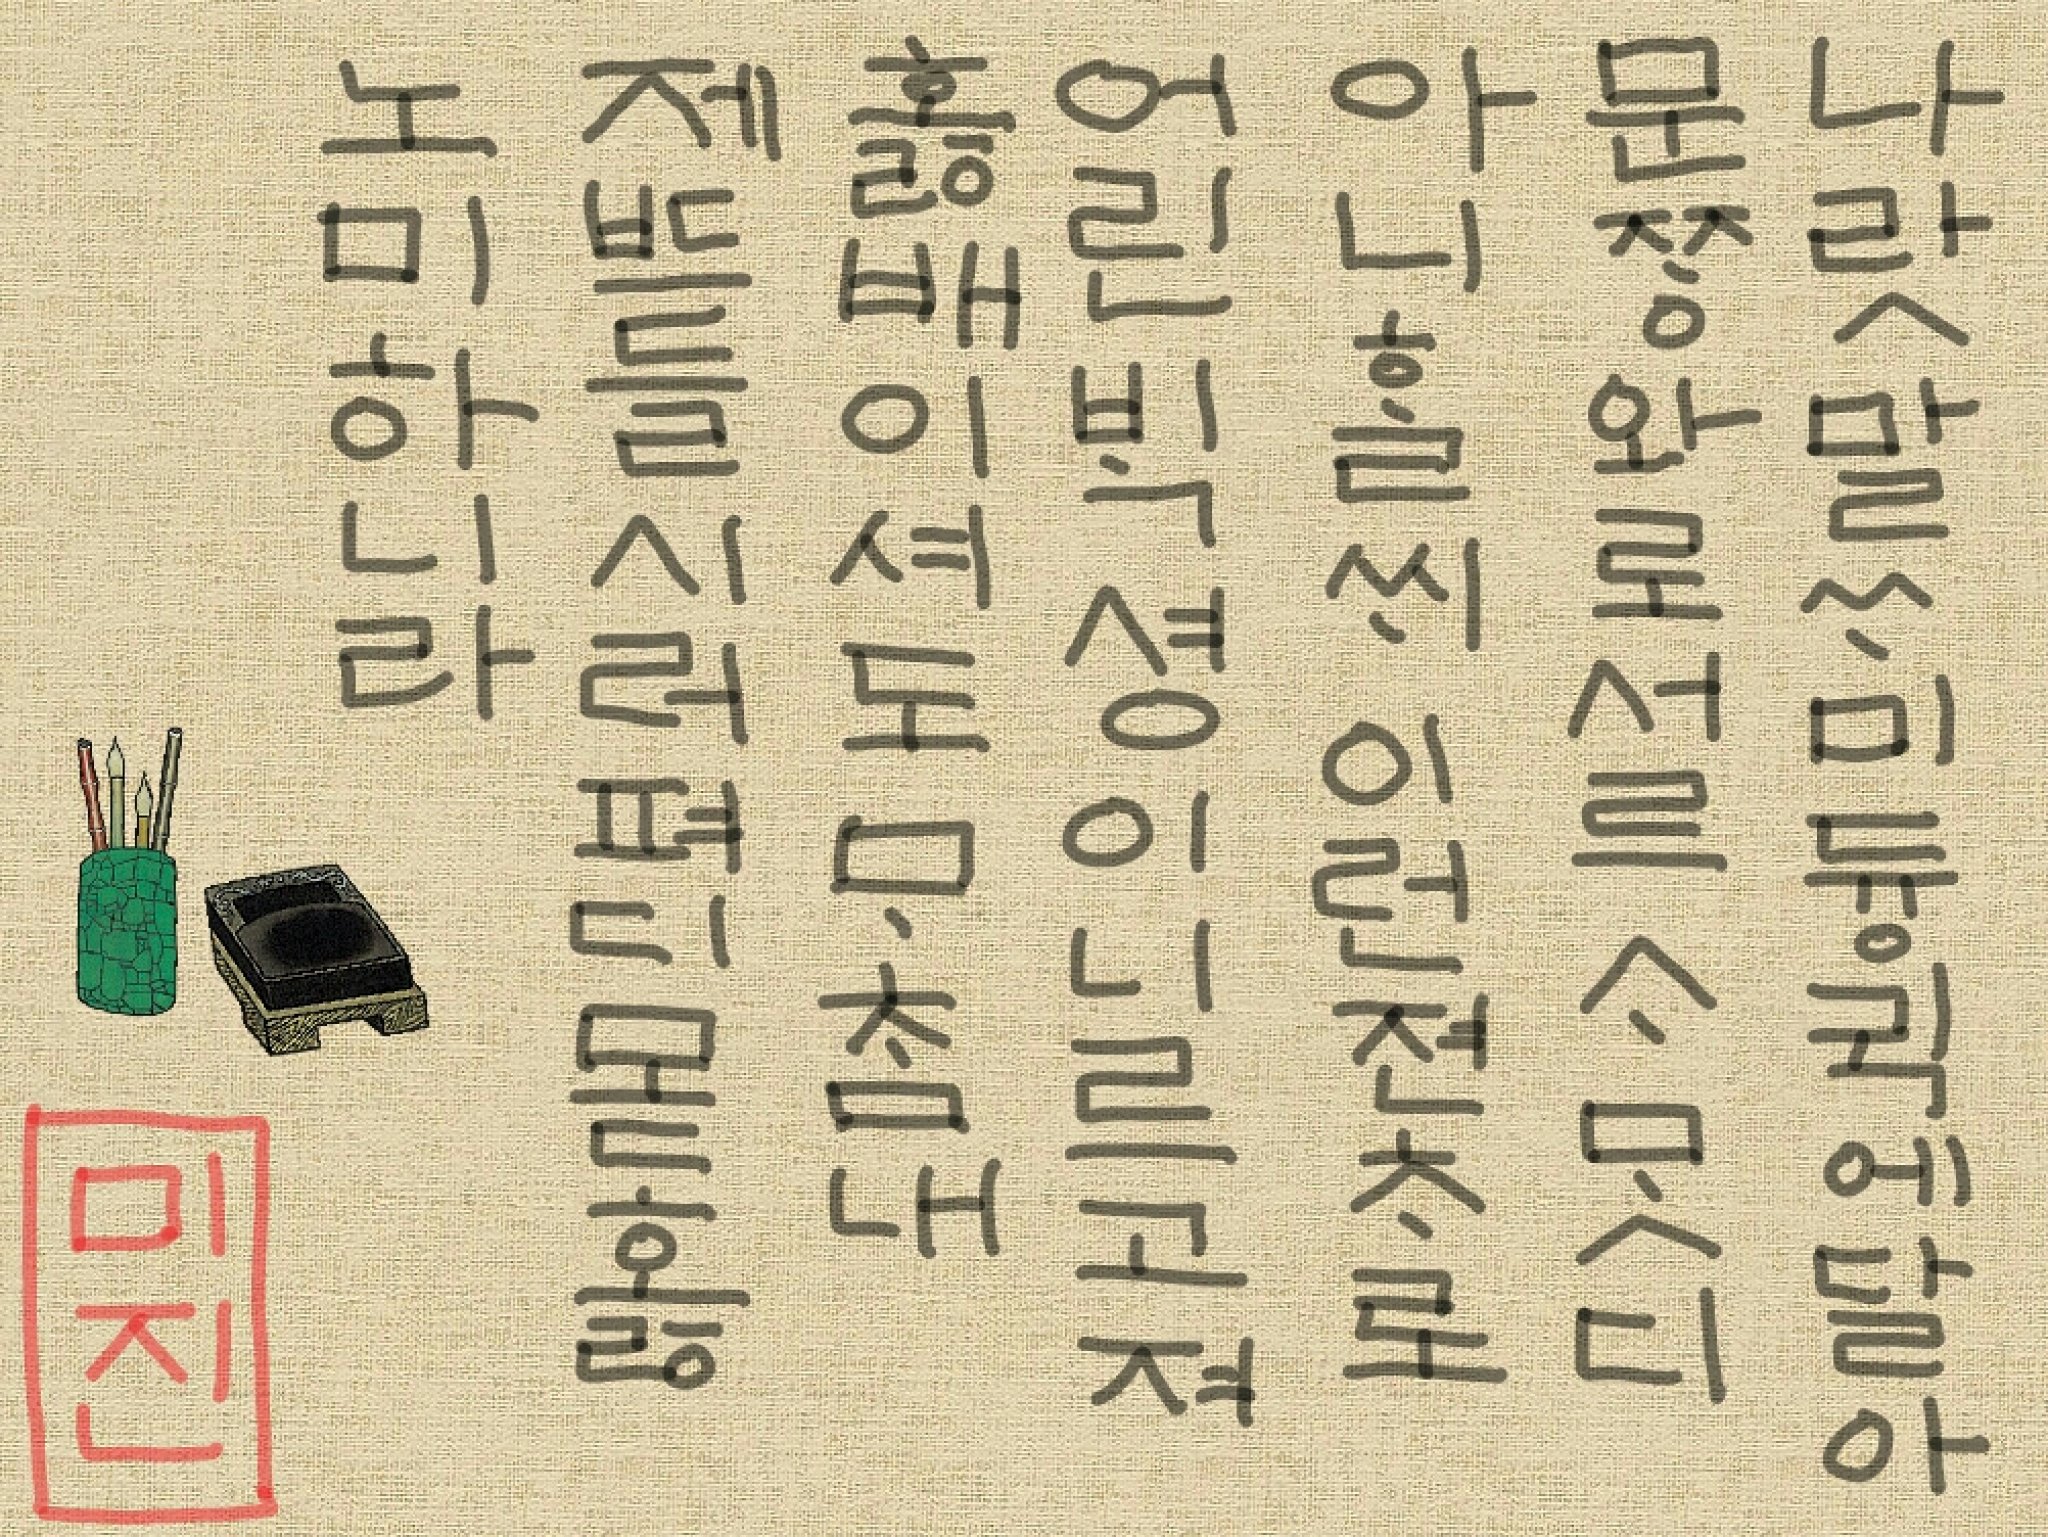 나랏말ᄊᆞ미듕귁에달아
문ᄍᆞᆼ와로서르ᄉᆞᄆᆞᆺ디
아니ᄒᆞᆯᄊᆡ이런젼ᄎᆞ로
어린ᄇᆡᆨ셩이니르고져
홇배이셔도ᄆᆞᄎᆞᆷ내
제ᄠᅳ들시러펴디몯홇
노미하니라
미진